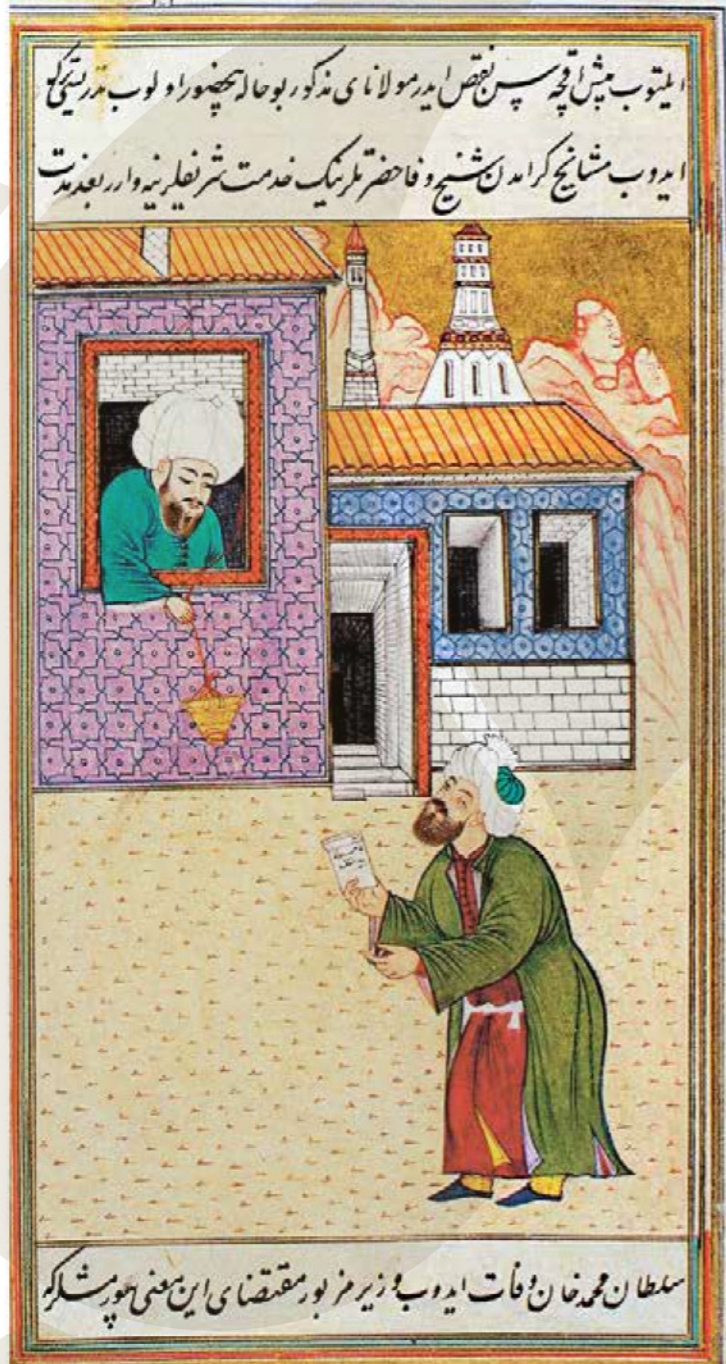 بیش اقچه سن نقص ایدر مولانای مذکور بو حاله بیحضور اولوب
ایدوب مشایخ کرامدن شیخ وفا حضرتلرینک خدمت شریفلرینه وارر بعد مدت
سلطان محمد خان وفات ایدوب وزیر مزبور مقتضای این معنی